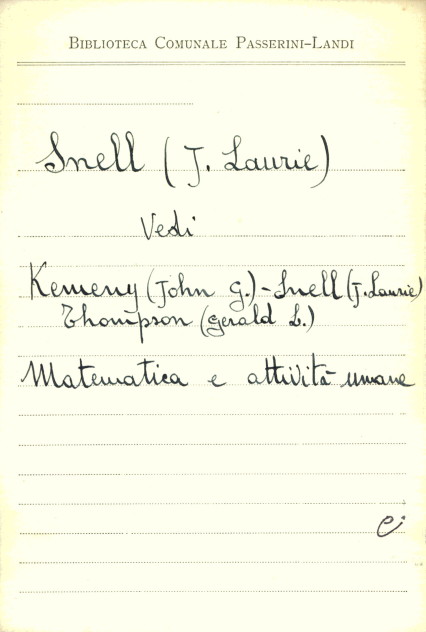 BIBLIOTECA COMUNALE PASSERINI-LANDI
Snell (J. Laurie)
Vedi
Kemeny (John G.) - Snell (J. Laurie)
Thompson (Gerald L.)
Matematica e attività umane